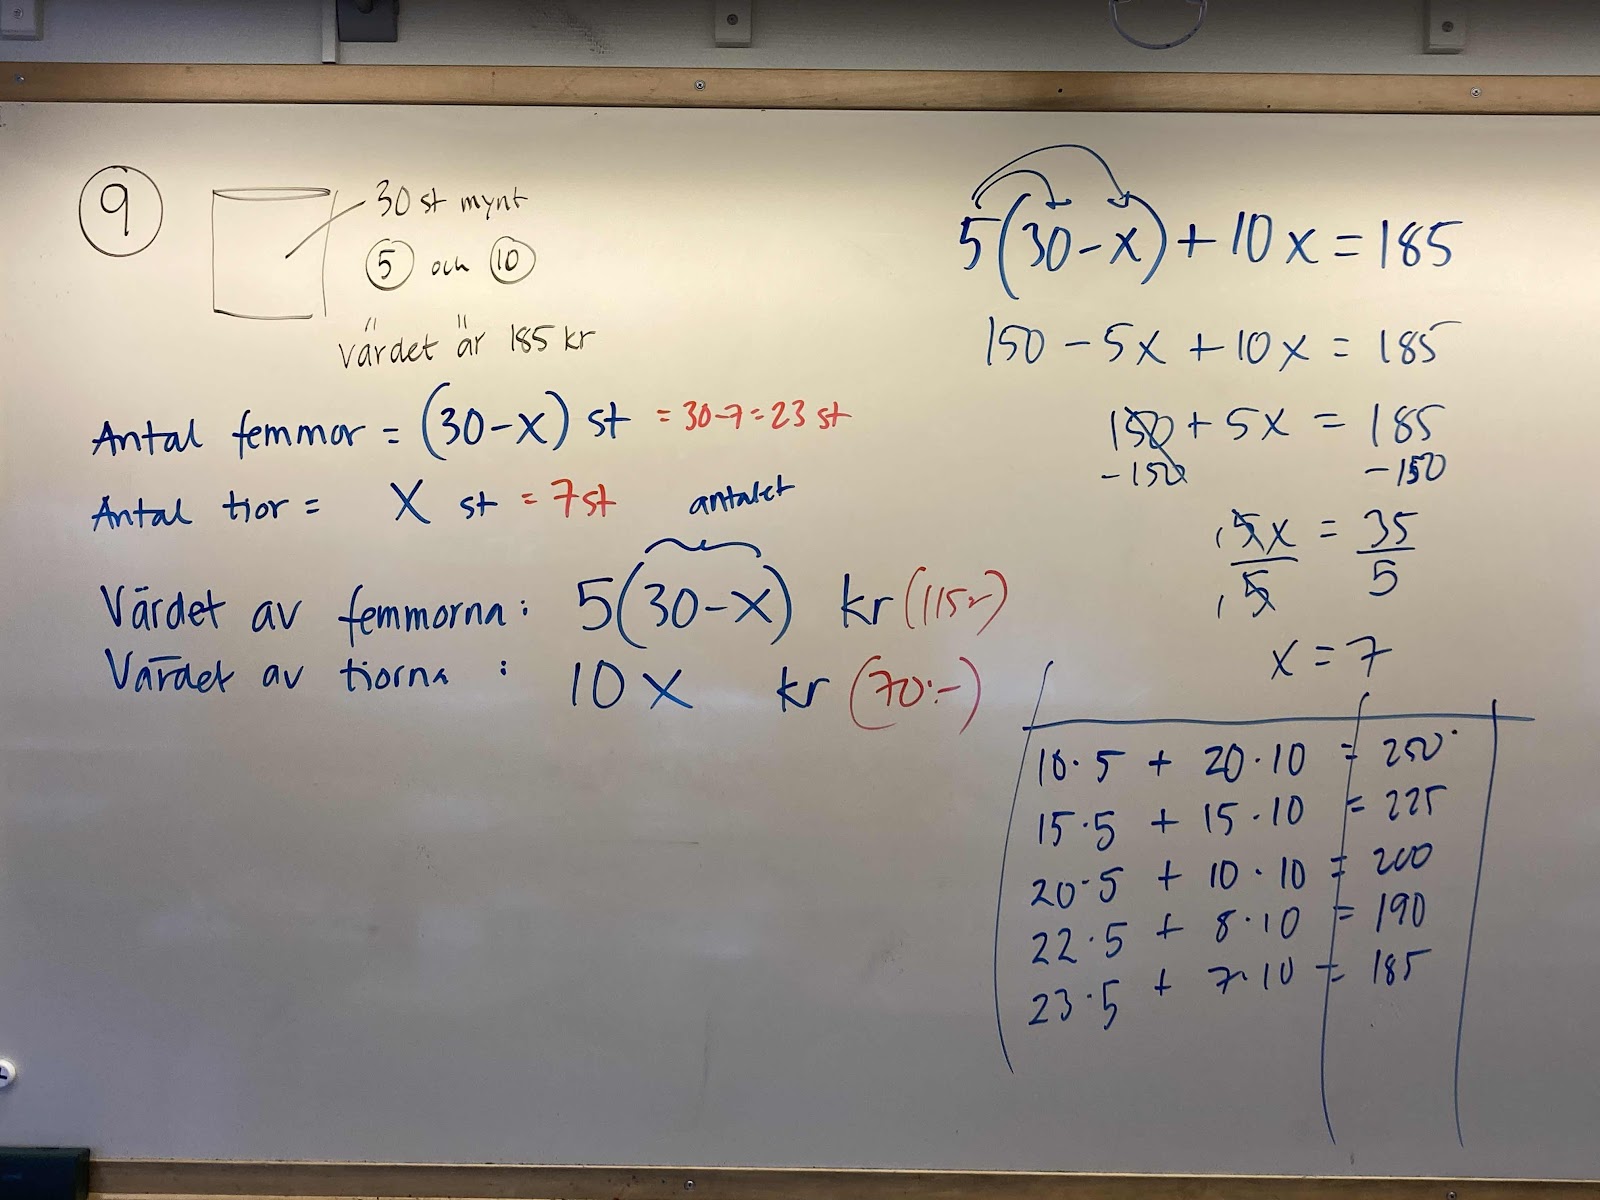 9
30 st mynt
5 och 10
värdet är 185 kr
Antal femmor = (30-x) st = 30-7=23 st
Antal tior = x st = 7st
antalet
Värdet av femmorna: 5(30-x) kr (115:-)
Värdet av tiorna : 10x kr (70:-)
5(30-x)+10x=185
150-5x+10x=185
150+5x=185
-150 -150
5x/5 = 35/5
x=7
10·5 + 20·10 = 250
15·5 + 15·10 = 225
20·5 + 10·10 = 200
22·5 + 8·10 = 190
23·5 + 7·10 = 185